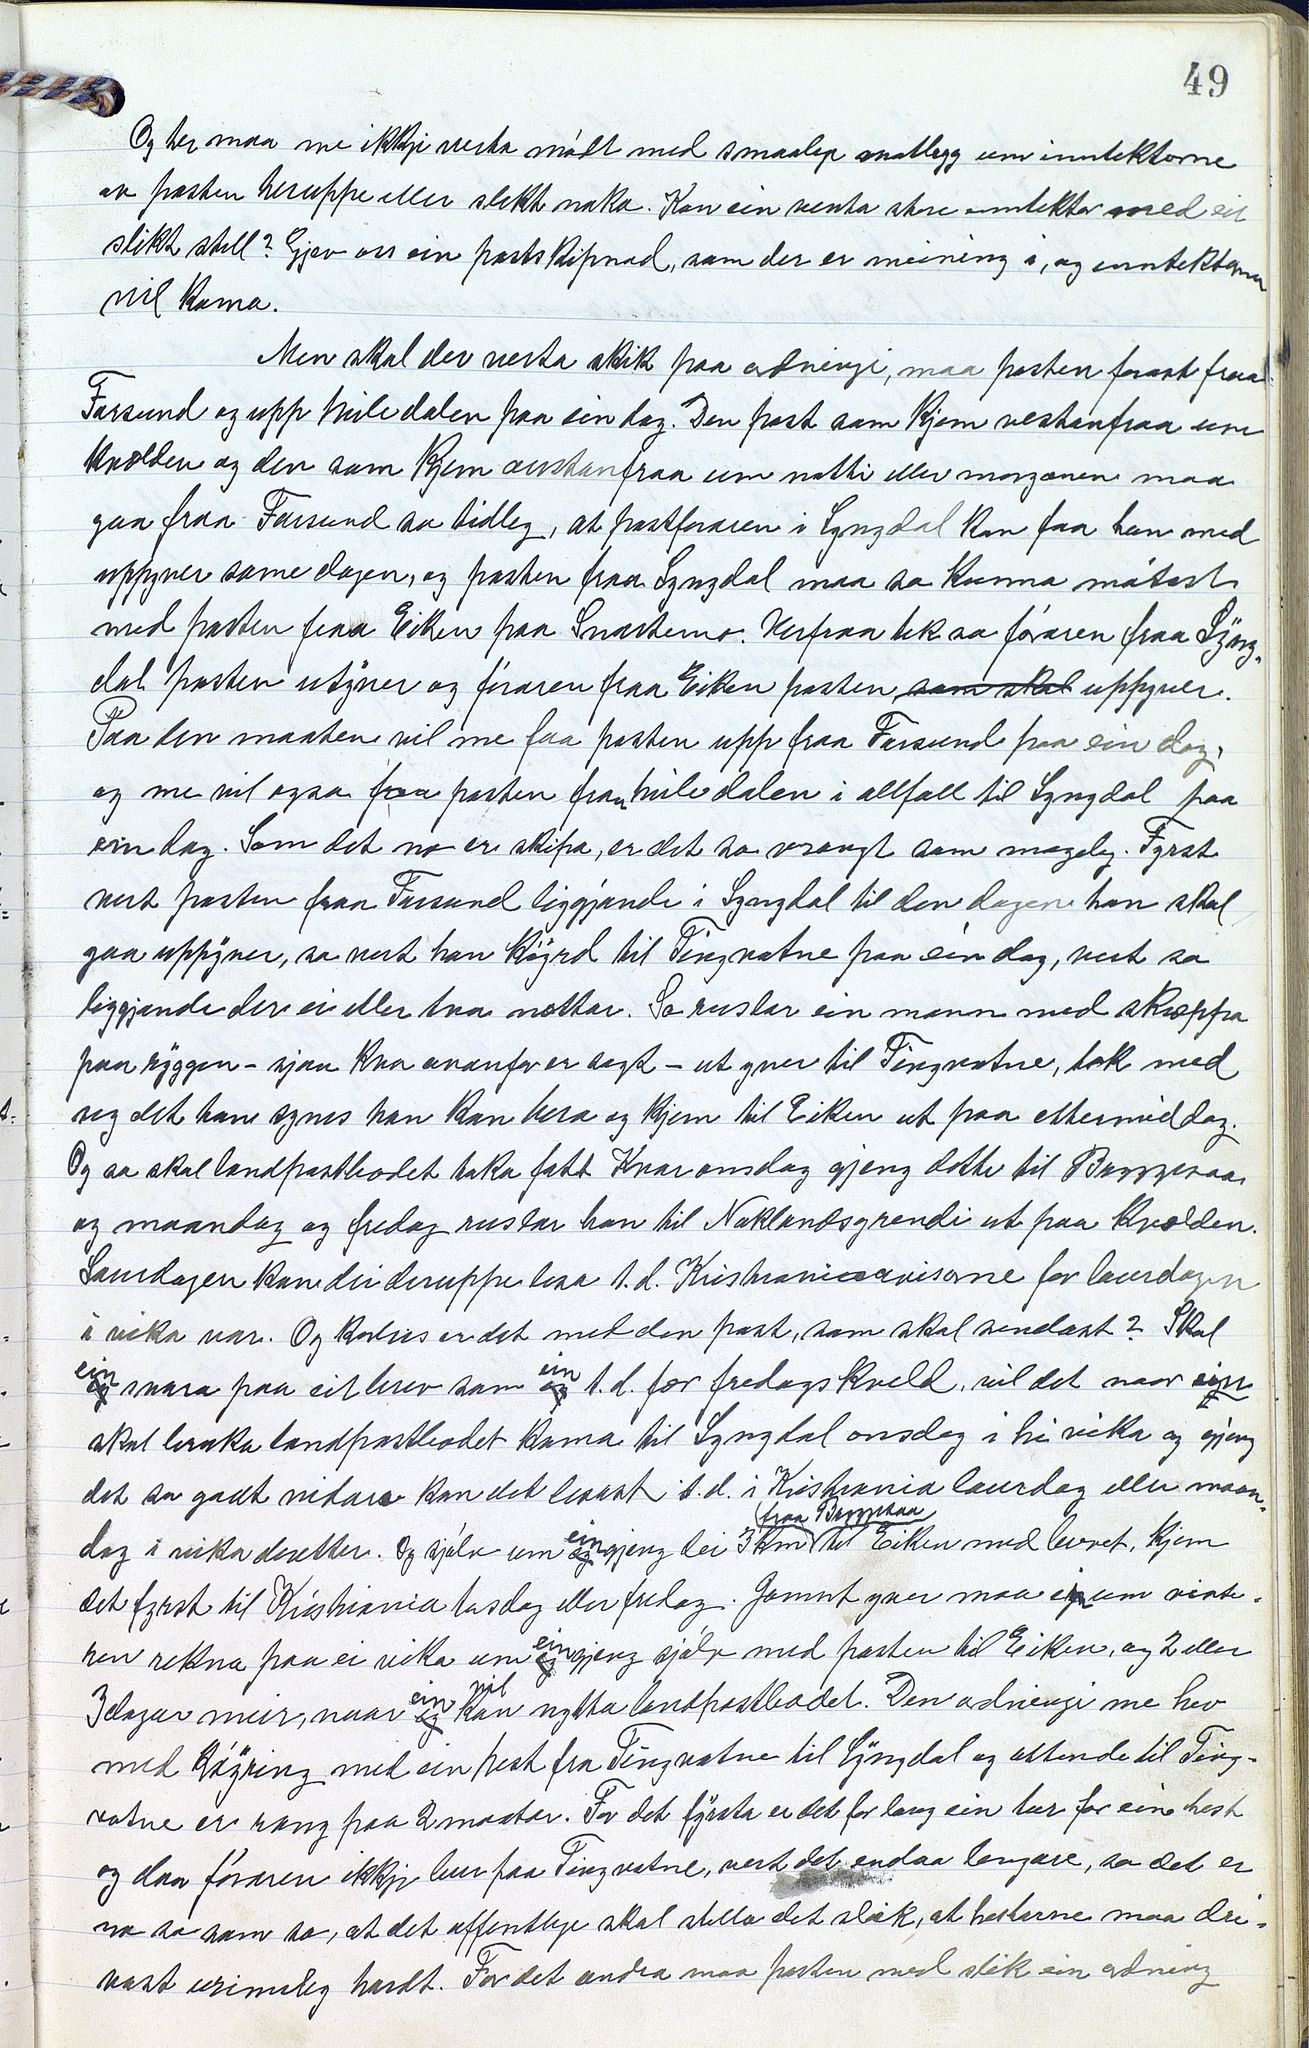 49
Og her maa me ikkje verta mødt med smaaleg utlegg um inntektorne
av posten heruppe eller slikt noko. Kan ein venta store inntektor med eit
slikt stell? Gjev oss ein postskipnad, som der er meining i, og inntektorne
vil koma.
Men skal der verta skik paa ordningi, maa posten førast fraa
Farsund og upp kviledalen paa ein dag. Den post som kjem vestanfraa um
kvelden og den som kjem austanfraa um natti eller morgonen maa
gaa fraa Farsund so tidleg, at postføraren i Lyngdal kan faa han med
uppyver same dagen, og posten fraa Lyngdal maa so kunna møtast
med posten fraa Eiken paa Snartemo. Herfraa tek so føraren fraa Lyng-
dal posten utyver og føraren fraa Eiken posten som skal uppyver.
Paa den maaten vil me faa posten upp fraa Farsund paa ein dag,
og me vil ogso faa posten fraa kviledalen i allfall til Lyngdal paa
ein dag. Som det no er skipa, er det so vrangt som mogeleg. Fyrst
vert posten fraa Farsund liggjande i Lyngdal til den dagen han skal
gaa uppyver, so vert han køyrd til Tingvatne paa ein dag, vert so
liggjande der ei eller tvo nøttar. So ruslar ein mann med skreppa
paa ryggen - sjaa kva ovanfor er sagt - ut yver til Tingvatne, tek med
seg det han synes han kan bera og kjem til Eiken ut paa ettermiddag.
Og so skal landpostbodet taka fatt. Kvar onsdag gjeng dette til Bryggesaa
og maandag og fredag ruslar han til Naklandsgrendi ut paa kvelden.
Laurdagen kan dei deruppe lesa t.d. Kristianiaavisorne for laurdagen
i vika var. Og korleis er det med den post, som skal sendast? Skal
ein svara paa eit brev som ein t.d. fær fredagskveld, vil det naar ein
skal bruka landpostbodet koma til Lyngdal onsdag i hi vika og gjeng
det so godt vidare kan det lesast t.d. i Kristiania laurdag eller maan-
dag i vika deretter. Og sjølv um ein gjeng dei 3 km (fraa Bryggesaa) til Eiken med brevet, kjem
det fyrst til Kristiania torsdag eller fredag. Jamnt yver maa ein um vinte-
ren rekna paa ei vika um ein gjeng sjølv med posten til Eiken, og 2 eller
3 dagar meir, naar ein vil kan nytta landpostbodet. Den ordningi me hev
med køyring med ein hest fra Tingvatne til Lyngdal og attende til Ting-
vatne er rang paa 2 maatar. For det fyrsta er det for lang ein tur for ein hest
og daa føraren ikkje bur paa Tingvatne, vert det endaa lengare, so det er
no so som so, at det offentlege skal stella det slik, at hestarne maa dri-
vast urimeleg hardt. For det andra maa posten med slik ein ordning